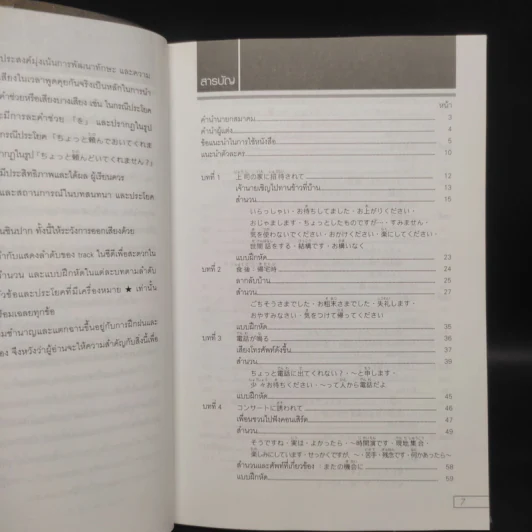 ประสงค์มุ่งเน้นการพัฒนาทักษะ และความ
เสียงในเวลาพูดคุยกันจริงเป็นหลักในการนำ
คำช่วยหรือเสียงบางเสียง เช่น ในกรณีประโยค
ะมีการละคำช่วย 「を」 และปรากฏในรูป
กรณีประโยค 「ちょっと頼んでおいてくれません?
ากฏในรูป 「ちょっと頼んどいてくれません?」
มีประสิทธิภาพและได้ผล ผู้เรียนควร
และสถานการณ์ในบทสนทนา และประโยค
ชินปาก ทั้งนี้ให้ระวังการออกเสียงด้วย
กำกับแสดงลำดับของ track ในซีดีเพื่อสะดวกใน
สำนวน และแบบฝึกหัดในแต่ละบทตามลำดับ
ัวข้อและประโยคที่มีเครื่องหมาย ★ เท่านั้น
ร้อมเฉลยทุกข้อ
วามชำนาญและแตกฉานขึ้นอยู่กับการฝึกฝนและ
อง จึงหวังว่าผู้อ่านจะให้ความสำคัญกับสิ่งนี้เพื่อ
สารบัญ
หน้า
คำนำนายกสมาคม 3
คำนำผู้แต่ง 4
ข้อแนะนำในการใช้หนังสือ 5
แนะนำตัวละคร 10
บทที่ 1 上司の家に招待されて 12
เจ้านายเชิญไปทานข้าวที่บ้าน 13
สำนวน 15
いらっしゃい・お待ちしてました・お上がりください・
おじゃまします・ちょっとしたものですが…・すみません・
気を使わないでください・おかけください・楽にしてください・
世間話をする・結構です・お構いなく
แบบฝึกหัด 23
บทที่ 2 食後・帰宅時 24
ลากลับบ้าน 25
สำนวน 27
ごちそうさまでした・お粗末さまでした・失礼します・
おやすみなさい・気をつけて帰ってください
แบบฝึกหัด 35
บทที่ 3 電話が鳴る 36
เสียงโทรศัพท์ดังขึ้น 37
สำนวน 39
ちょっと電話に出てくれない?・〜と申します・
少々お待ちください・〜って人から電話だよ
แบบฝึกหัด 45
บทที่ 4 コンサートに誘われて 46
เพื่อนชวนไปฟังคอนเสิร์ต 47
สำนวน 49
そうですね・実は・よかったら・〜時間潰です・現地集合・
楽しみにしています・せっかくですが、〜・苦手・残念です・何かあったら〜
สำนวนและศัพท์ที่เกี่ยวข้อง : またの機会に 58
แบบฝึกหัด 59
7